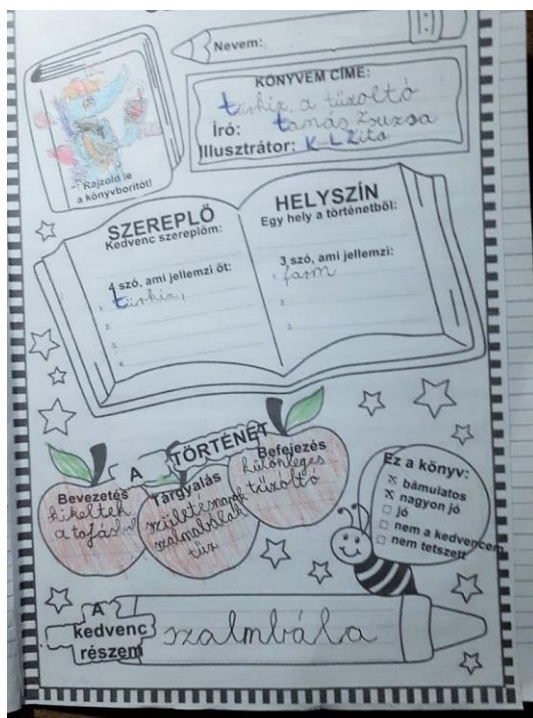 Nevem:
KÖNYVEM CÍME:
türkiz, a tűzoltó
Író: tamás Zsuzsa
Illusztrátor: K L Zita
Rajzold le
a könyvborítót!
SZEREPLŐ
Kedvenc szereplőm:
4 szó, ami jellemzi őt:
1. türkiz,
2.
3.
4.
HELYSZÍN
Egy hely a történetből:
3 szó, ami jellemzi:
1. farm
2.
3.
A TÖRTÉNET
Bevezetés
kikeltek
a tojásból
Tárgyalás
születésnapok
szalmabálák
tűz
Befejezés
különleges
tűzoltó
Ez a könyv:
x bámulatos
x nagyon jó
jó
nem a kedvencem
nem tetszett
A
kedvenc
részem
szalmbála